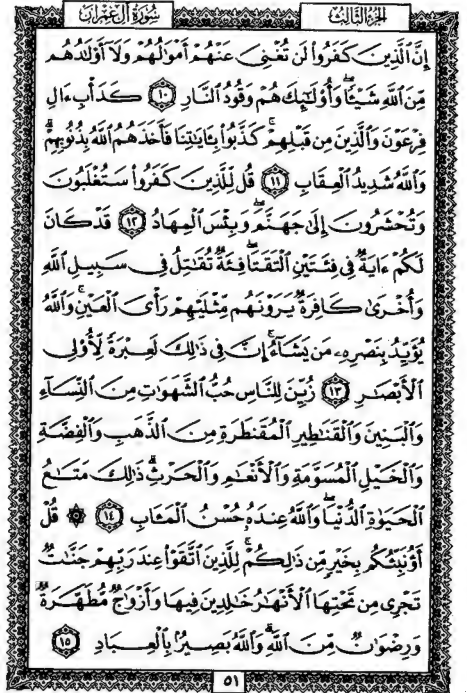 سُورَةُ آلِ عِمْرَان
الجُزْءُ الثَّالِثُ
إِنَّ ٱلَّذِينَ كَفَرُوا۟ لَن تُغْنِىَ عَنْهُمْ أَمْوَٰلُهُمْ وَلَآ أَوْلَٰدُهُم
مِّنَ ٱللَّهِ شَيْـًٔا ۖ وَأُو۟لَٰٓئِكَ هُمْ وَقُودُ ٱلنَّارِ ١٠ كَدَأْبِ ءَالِ
فِرْعَوْنَ وَٱلَّذِينَ مِن قَبْلِهِمْ ۚ كَذَّبُوا۟ بِـَٔايَٰتِنَا فَأَخَذَهُمُ ٱللَّهُ بِذُنُوبِهِمْ ۗ
وَٱللَّهُ شَدِيدُ ٱلْعِقَابِ ١١ قُل لِّلَّذِينَ كَفَرُوا۟ سَتُغْلَبُونَ
وَتُحْشَرُونَ إِلَىٰ جَهَنَّمَ ۚ وَبِئْسَ ٱلْمِهَادُ ١٢ قَدْ كَانَ
لَكُمْ ءَايَةٌ فِى فِئَتَيْنِ ٱلْتَقَتَا ۖ فِئَةٌ تُقَٰتِلُ فِى سَبِيلِ ٱللَّهِ
وَأُخْرَىٰ كَافِرَةٌ يَرَوْنَهُم مِّثْلَيْهِمْ رَأْىَ ٱلْعَيْنِ ۚ وَٱللَّهُ
يُؤَيِّدُ بِنَصْرِهِۦ مَن يَشَآءُ ۗ إِنَّ فِى ذَٰلِكَ لَعِبْرَةً لِّأُو۟لِى
ٱلْأَبْصَٰرِ ١٣ زُيِّنَ لِلنَّاسِ حُبُّ ٱلشَّهَوَٰتِ مِنَ ٱلنِّسَآءِ
وَٱلْبَنِينَ وَٱلْقَنَٰطِيرِ ٱلْمُقَنطَرَةِ مِنَ ٱلذَّهَبِ وَٱلْفِضَّةِ
وَٱلْخَيْلِ ٱلْمُسَوَّمَةِ وَٱلْأَنْعَٰمِ وَٱلْحَرْثِ ۗ ذَٰلِكَ مَتَٰعُ
ٱلْحَيَوٰةِ ٱلدُّنْيَا ۖ وَٱللَّهُ عِندَهُۥ حُسْنُ ٱلْمَـَٔابِ ١٤ ۞ قُلْ
أَؤُنَبِّئُكُم بِخَيْرٍ مِّن ذَٰلِكُمْ ۚ لِلَّذِينَ ٱتَّقَوْا۟ عِندَ رَبِّهِمْ جَنَّٰتٌ
تَجْرِى مِن تَحْتِهَا ٱلْأَنْهَٰرُ خَٰلِدِينَ فِيهَا وَأَزْوَٰجٌ مُّطَهَّرَةٌ
وَرِضْوَٰنٌ مِّنَ ٱللَّهِ ۗ وَٱللَّهُ بَصِيرٌۢ بِٱلْعِبَادِ ١٥
٥١